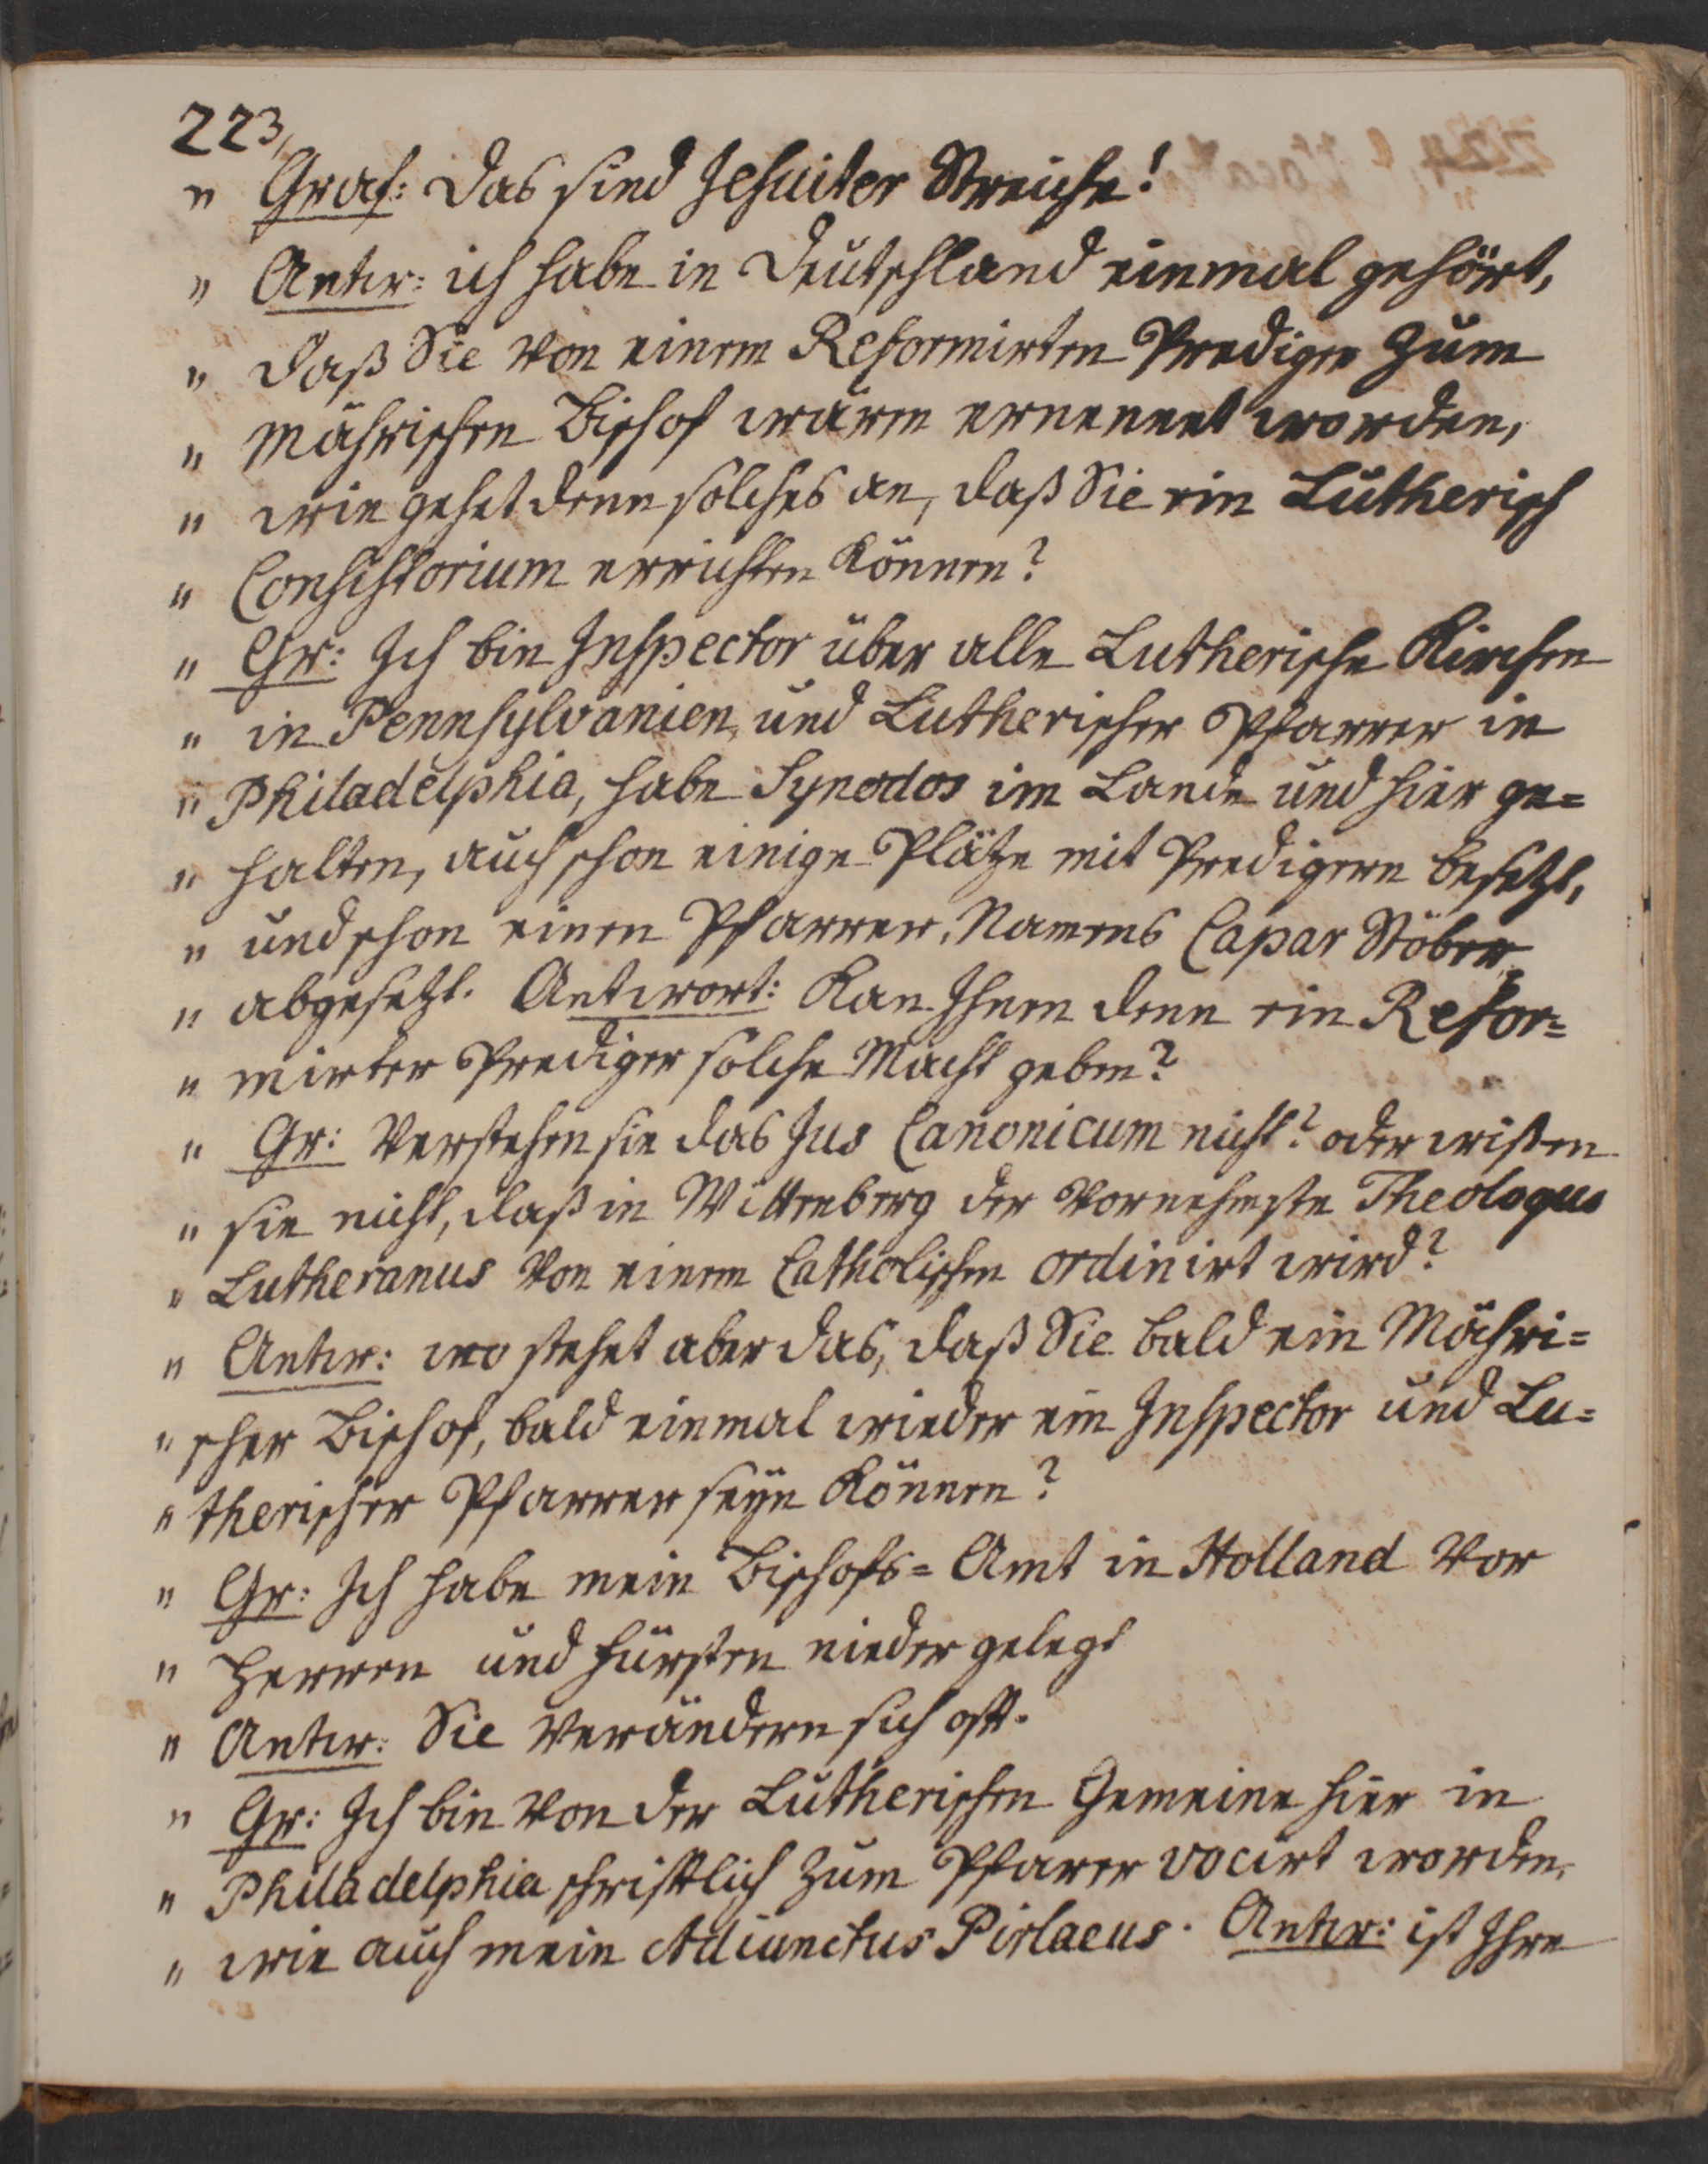 223,
" Graf: das sind Jesuiter Streiche!
" Antw: ich habe in Deutschland einmal gehört,
" daß Sie von einem Reformirten Prediger zum
" Mährischen Bischof wären ernennet worden,
" wie gehet denn solches an, daß Sie ein Lutherisch
" Consistorium errichten können?
" Gr: Ich bin Inspector über alle Lutherische Kirchen
" in Pennsylvanien, und Lutherischer Pfarrer in
" Philadelphia, habe Synodos im Lande und hier ge=
" halten, auch schon einige Plätze mit Predigern besetzt,
" und schon einen Pfarrer, Namens Capar Stöber
" abgesetzt. Antwort: Kan Ihnen denn ein Refor=
" mirter Prediger solche Macht geben?
" Gr: Verstehen sie das Jus Canonicum nicht? oder wißen
" sie nicht, daß in Wittenberg der vornehmste Theologus
" Lutheranus von einem Catholischen ordinirt wird?
" Antw: wo stehet aber das, daß Sie bald ein Mähri=
" scher Bischof, bald einmal wieder ein Inspector und Lu=
" therischer Pfarrer seyn können?
" Gr: Ich habe mein Bischofs= Amt in Holland vor
" Herren und Fürsten nieder gelegt
" Antw: Sie verändern sich oft.
" Gr: Ich bin von der Lutherischen Gemeine hier in
" Philadelphia schriftlich zum Pfarer vocirt worden,
" wie auch mein Adiunctus Pirlaeus. Antw: ist Ihre